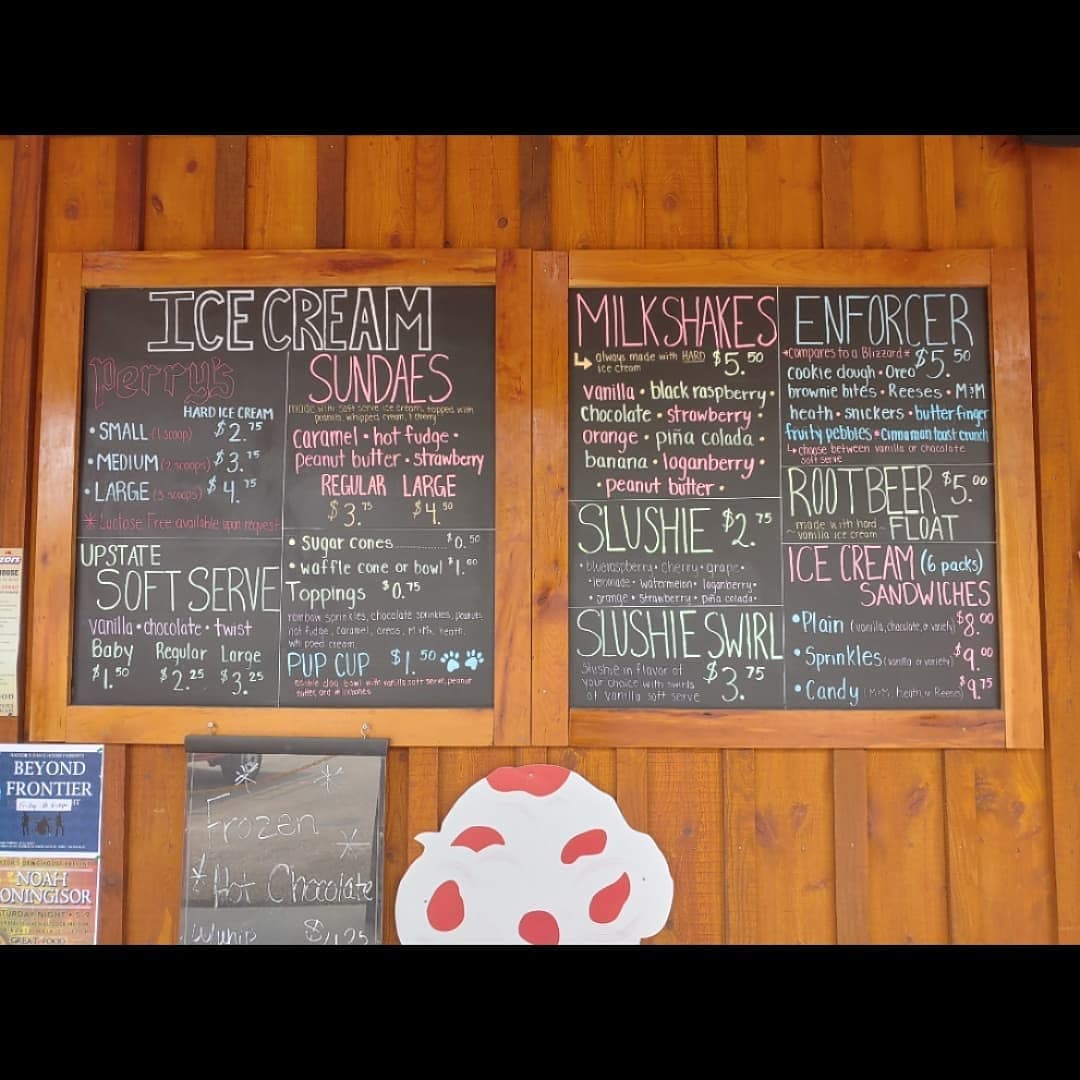 ICE CREAM
Perry's
HARD ICE CREAM
• SMALL (1 scoop) $2.75
• MEDIUM (2 scoops) $3.75
• LARGE (3 scoops) $4.75
* Lactose Free available upon request
SUNDAES
made with soft serve ice cream, topped with
peanuts, whipped cream, & cherry
caramel • hot fudge •
peanut butter • strawberry
REGULAR LARGE
$3.75 $4.50
UPSTATE
SOFT SERVE
vanilla • chocolate • twist
Baby Regular Large
$1.50 $2.25 $3.25
• Sugar cones $0.50
• waffle cone or bowl $1.00
Toppings $0.75
rainbow sprinkles, chocolate sprinkles, peanuts
hot fudge, caramel, oreos, M&Ms, heath,
whipped cream
PUP CUP $1.50
edible dog bowl with vanilla soft serve, peanut
butter, and
MILKSHAKES
always made with HARD
ice cream
$5.50
vanilla • black raspberry •
chocolate • strawberry •
orange • piña colada •
banana • loganberry •
• peanut butter •
SLUSHIE $2.75
• blue raspberry • cherry • grape •
• lemonade • watermelon • loganberry •
• orange • strawberry • piña colada •
SLUSHIE SWIRL
Slushie in flavor of
your choice with swirls
of vanilla soft serve
$3.75
ENFORCER
*compares to a Blizzard* $5.50
cookie dough • Oreo
brownie bites • Reeses • M&M
heath • snickers • butterfinger
fruity pebbles • Cinnamon toast crunch
choose between vanilla or chocolate
soft serve
ROOTBEER $5.00
FLOAT
~ made with hard ~
vanilla ice cream
ICE CREAM (6 packs)
SANDWICHES
• Plain (vanilla, chocolate, or variety) $8.00
• Sprinkles (vanilla or variety) $9.00
• Candy (M&M, heath or Reeses) $9.75
BEYOND
FRONTIER
NOAH
ONINGISOR
ATURDAY NIGHT • 5-9
GREAT FOOD
Frozen
Hot Chocolate
w/whip $4.25